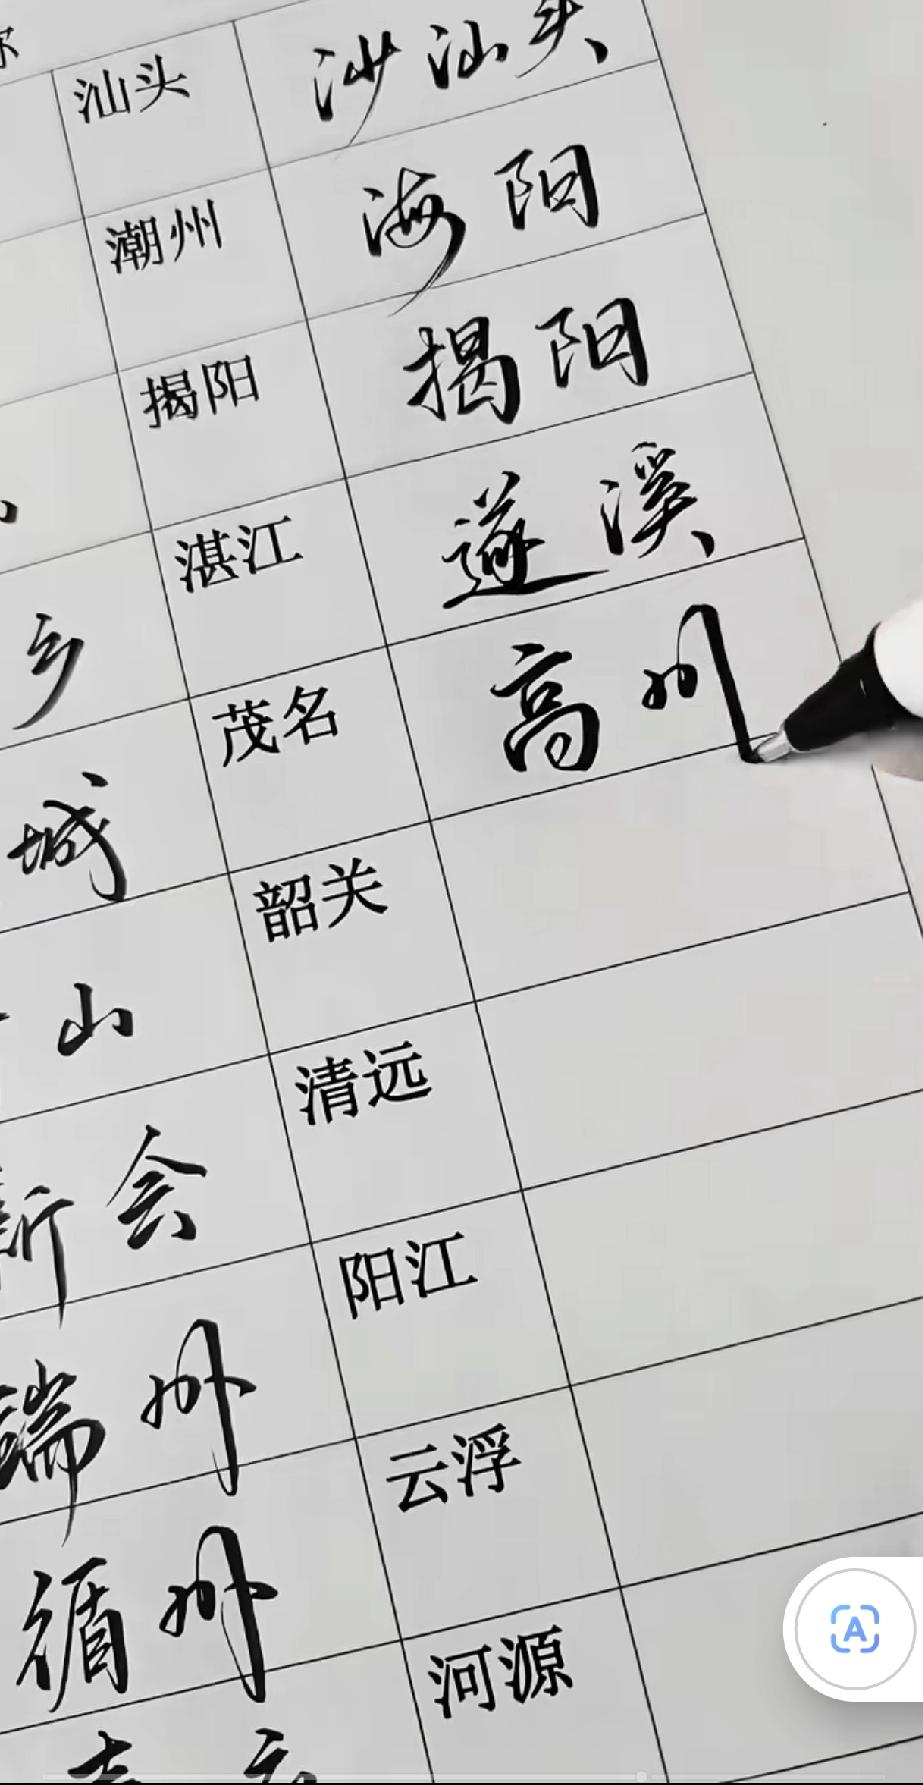 汕头 沙汕头
潮州 海阳
揭阳 揭阳
湛江 遂溪
乡 茂名 高州
城 韶关
山 清远
新会 阳江
端州 云浮
循州 河源